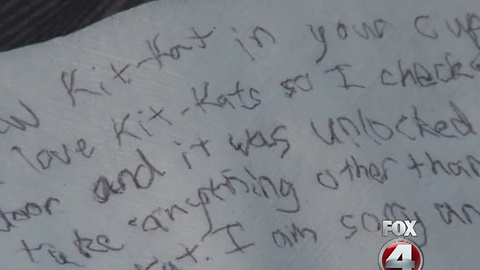 Kit-Kat in your cup
love Kit-Kats so I check
door and it was unlocked
take anything other than
I am sorry an
FOX
4